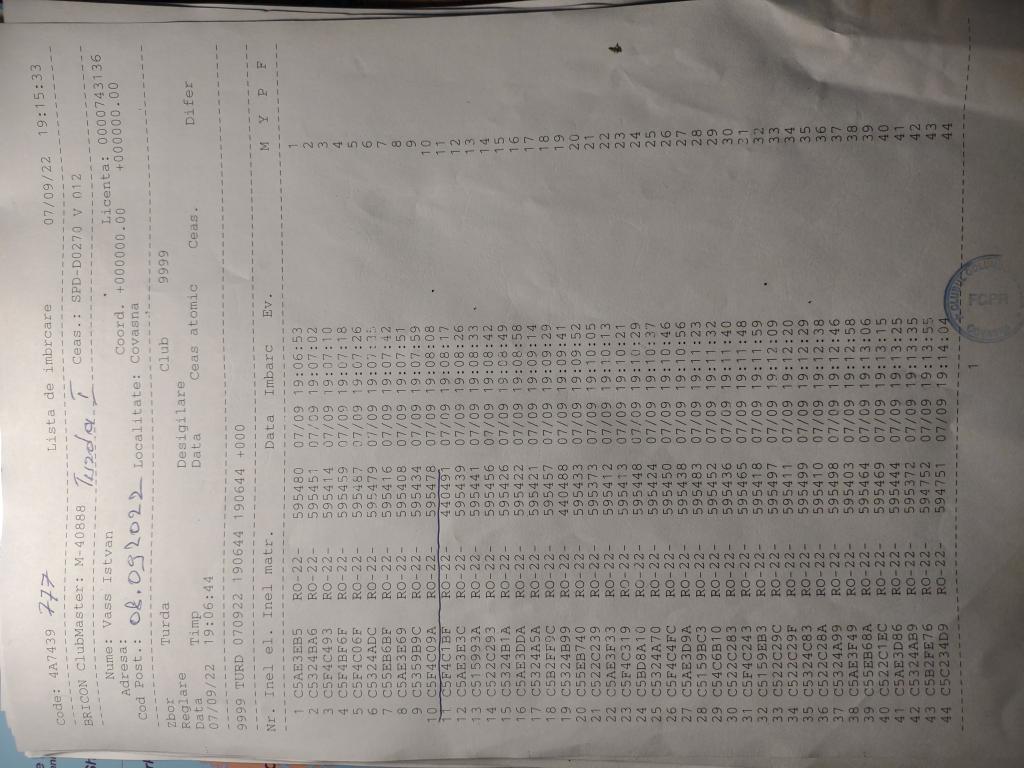 Code: 4A7439 777 Lista de imbrcare 07/09/22 19:15:33
BRICON ClubMaster: M-40888 Turda I Ceas.: SPD-D0270 V 012
Nume: Vass Istvan Licenta: 0000743136
Adresa: Coord. +000000.00 +000000.00
Cod Post.: 08.092022 Localitate: covasna
Zbor Turda Club 9999
Reglare Desigilare
Data Timp Data Ceas atomic Ceas. Difer
07/09/22 19:06:44
9999 TURD 070922 190644 190644 +000
Nr. Inel el. Inel matr. Data Imbarc Ev. M Y P F
1 C5AE3EB5 RO-22- 595480 07/09 19:06:53 1
2 C5324BA6 RO-22- 595451 07/09 19:07:02 2
3 C5F4C493 RO-22- 595414 07/09 19:07:10 3
4 C5F4BF6F RO-22- 595459 07/09 19:07:18 4
5 C5F4C06F RO-22- 595487 07/09 19:07:26 5
6 C5324ADC RO-22- 595479 07/09 19:07:35 6
7 C55EB6BF RO-22- 595416 07/09 19:07:42 7
8 C5AE3E69 RO-22- 595408 07/09 19:07:51 8
9 C5359B9C RO-22- 595434 07/09 19:07:59 9
10 C5F4C09A RO-22- 595478 07/09 19:08:08 10
11 C5F4C1BF RO-22- 440491 07/09 19:08:17 11
12 C5AE3E3C RO-22- 595439 07/09 19:08:26 12
13 C515993A RO-22- 595441 07/09 19:08:33 13
14 C522C293 RO-22- 595456 07/09 19:08:42 14
15 C5324B1A RO-22- 595426 07/09 19:08:49 15
16 C5AE3DDA RO-22- 595422 07/09 19:08:58 16
17 C5324A5A RO-22- 595421 07/09 19:09:14 17
18 C5B2FF9C RO-22- 595457 07/09 19:09:29 18
19 C5324B99 RO-22- 440488 07/09 19:09:41 19
20 C55EB740 RO-22- 595433 07/09 19:09:52 20
21 C522C239 RO-22- 595373 07/09 19:10:05 21
22 C5AE3F33 RO-22- 595412 07/09 19:10:13 22
23 C5F4C319 RO-22- 595413 07/09 19:10:21 23
24 C5BD2A10 RO-22- 595448 07/09 19:10:29 24
25 C5324A70 RO-22- 595424 07/09 19:10:37 25
26 C5F4C4FC RO-22- 595450 07/09 19:10:46 26
27 C5AE3D9A RO-22- 595438 07/09 19:10:56 27
28 C5159BC3 RO-22- 595483 07/09 19:11:23 28
29 C54C6B10 RO-22- 595452 07/09 19:11:32 29
30 C522C283 RO-22- 595436 07/09 19:11:40 30
31 C5F4C243 RO-22- 595465 07/09 19:11:48 31
32 C5159EB3 RO-22- 595418 07/09 19:11:59 32
33 C522C29C RO-22- 595497 07/09 19:12:09 33
34 C522C29F RO-22- 595411 07/09 19:12:20 34
35 C5324C83 RO-22- 595499 07/09 19:12:29 35
36 C522C28A RO-22- 595410 07/09 19:12:38 36
37 C5324A99 RO-22- 595498 07/09 19:12:46 37
38 C5AE3F49 RO-22- 595403 07/09 19:12:58 38
39 C55EB68A RO-22- 595464 07/09 19:13:06 39
40 C522C1EC RO-22- 595469 07/09 19:13:15 40
41 C5AE3D86 RO-22- 595444 07/09 19:13:25 41
42 C5324AB9 RO-22- 595372 07/09 19:13:35 42
43 C5B2FE76 RO-22- 594752 07/09 19:13:55 43
44 C5C234D9 RO-22- 594751 07/09 19:14:04 44
1
FCPR